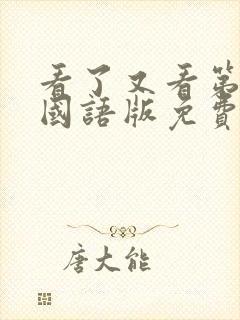 看了又看第
國語版免費
唐大能